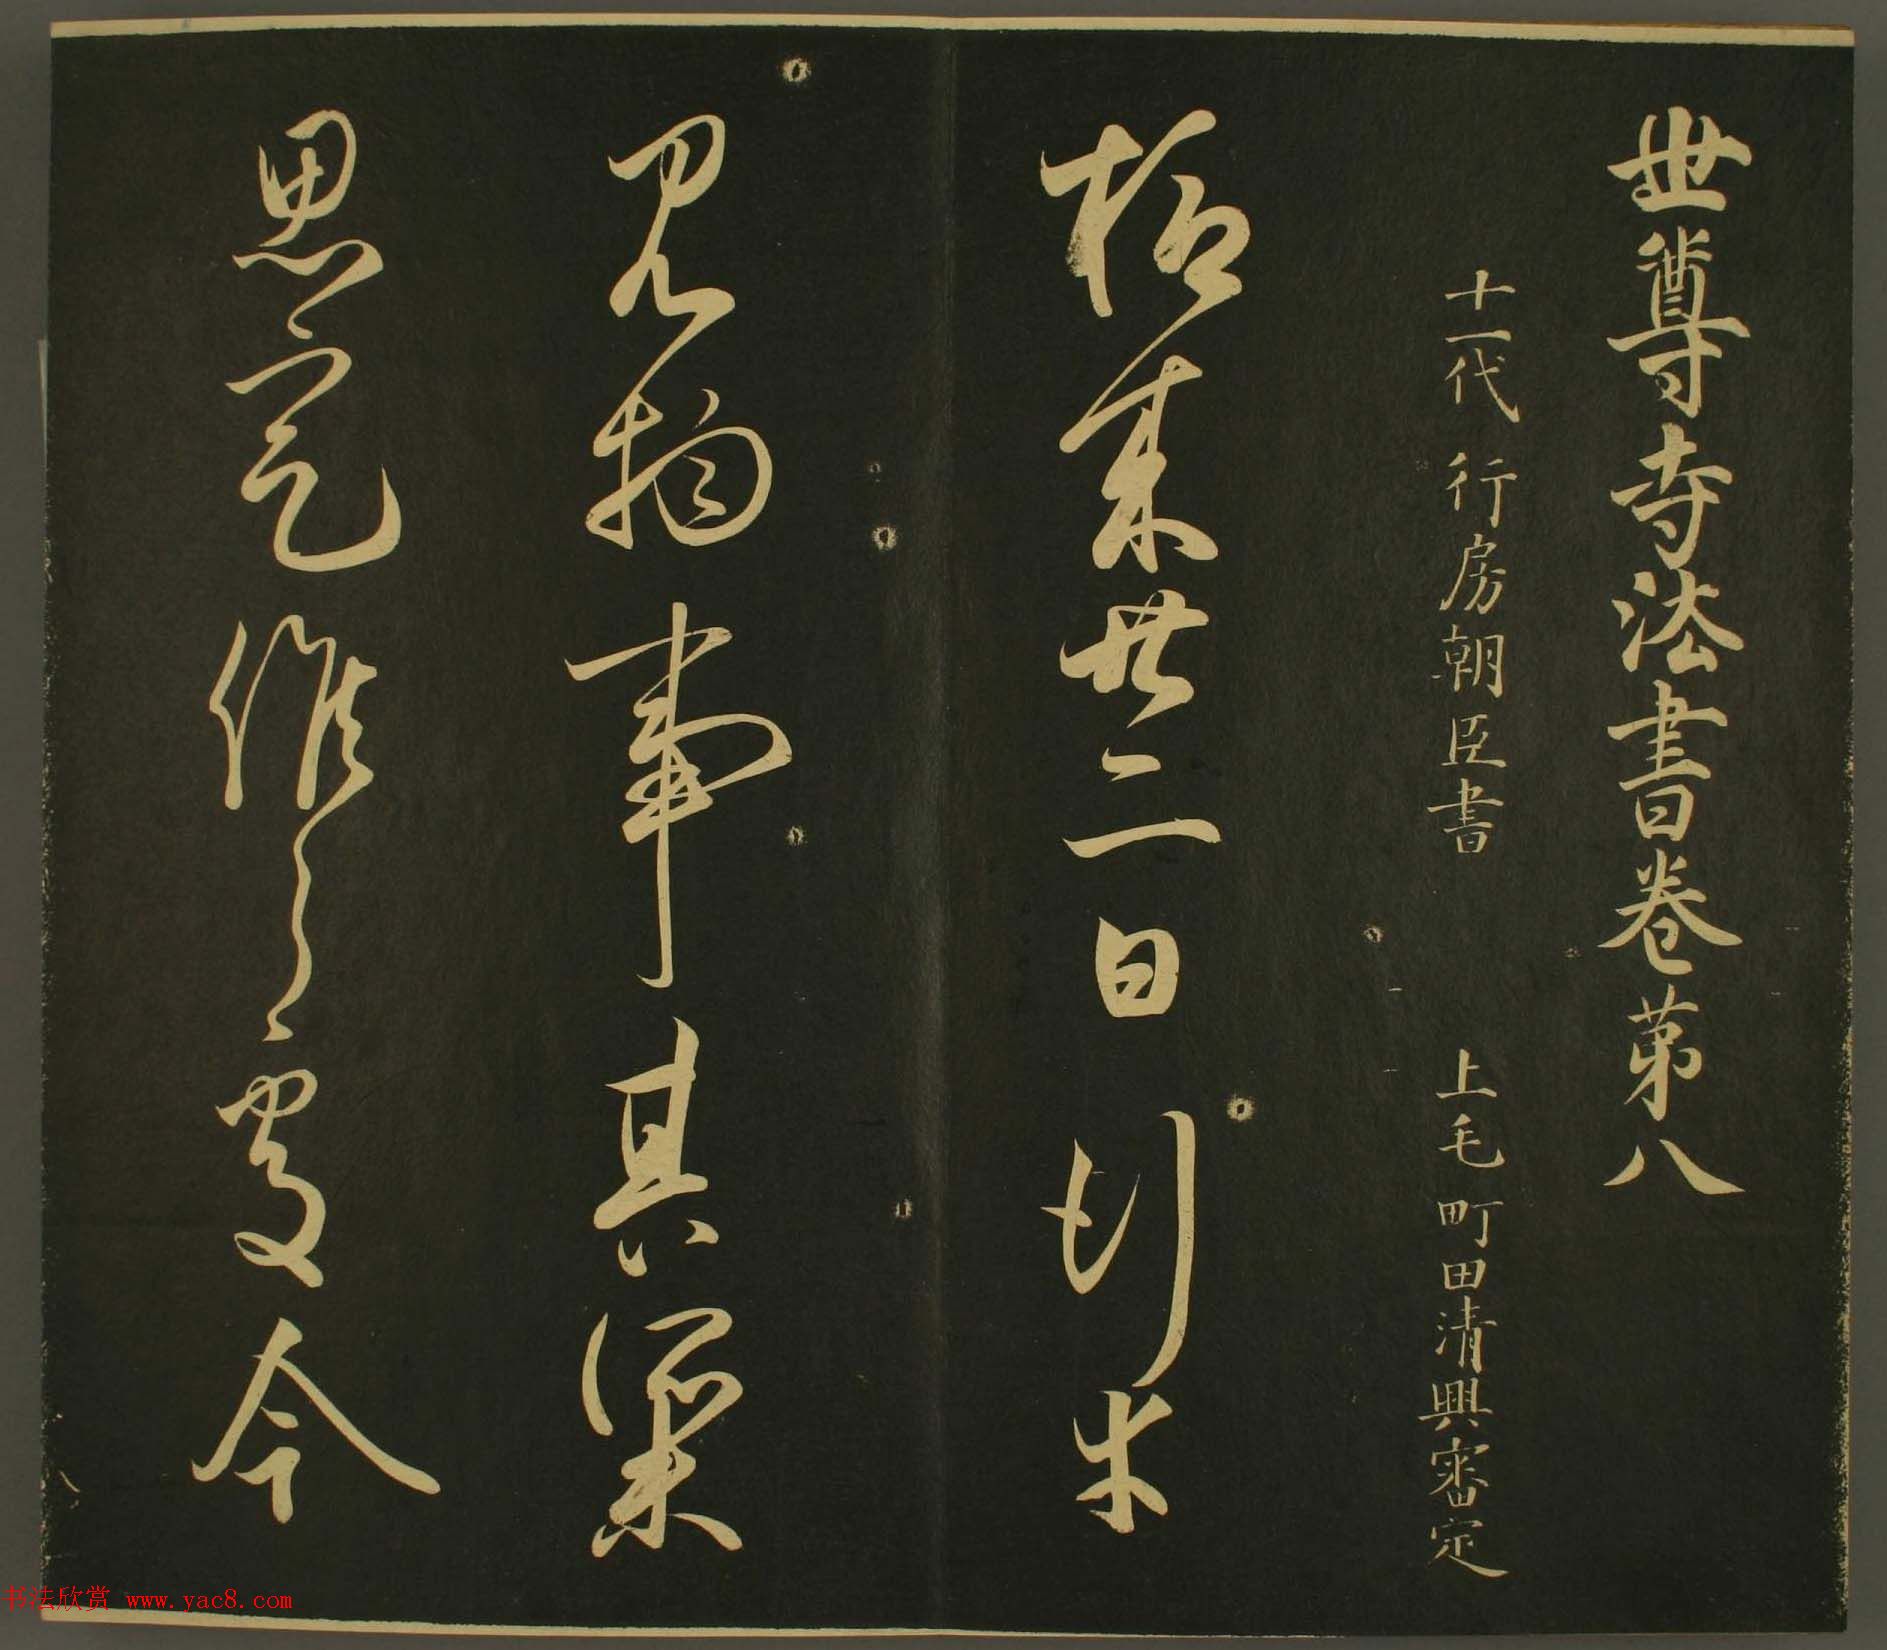 世尊寺法書卷第八
十一代 行房朝臣書 上毛町田清興審定
抑來廿二日行幸
見物事其
思食候之處今
书法欣赏 www.yac8.com